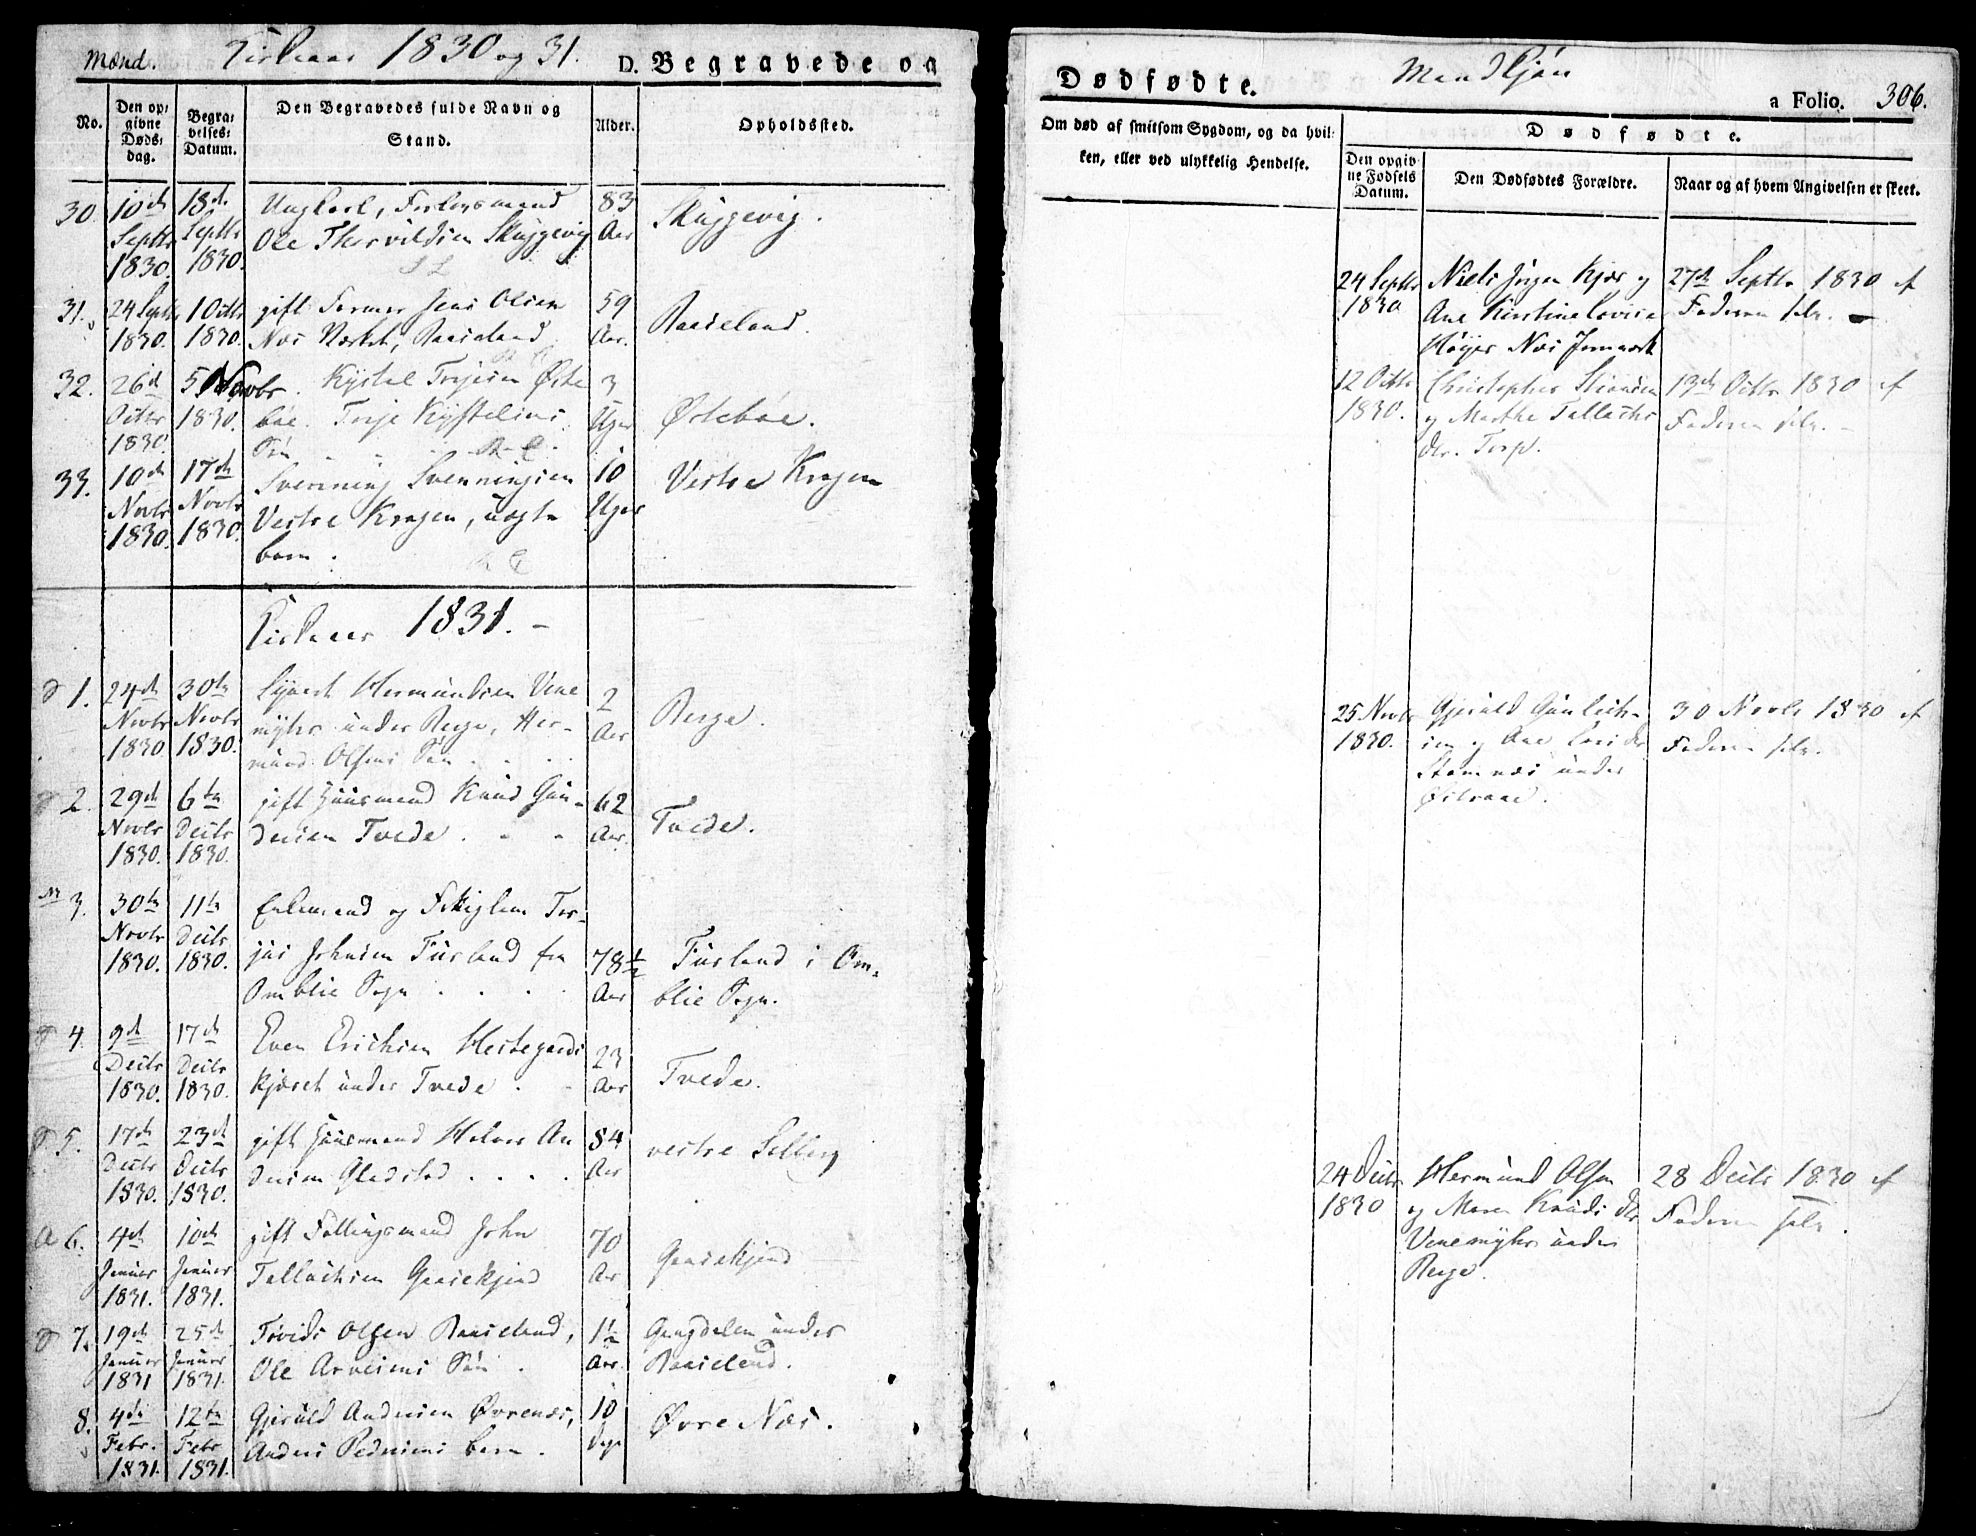 Mænd. Kirkeaar 1830 og 31. D. Begravede og
No.
Den op=
givne
Døds=
dag.
Begra=
velses=
Datum.
Den Begravedes fulde Navn og
Stand.
Alder.
Opholdssted.
30. 10de Septbr 1830. 18de Septbr 1830.
Ungkarl,
Ole Thorvildsen Skuggevig
83 Aar
Skuggevig.
31. 24 Septbr 1830. 1 Octbr 1830.
gift Former Jens Olsen
Nes Verket, Raaseland
59 Aar.
Raaseland.
32. 26de Octbr 1830. 5 Novbr 1830.
Kystel Terjesen Øste
bøe. Terje Kystelsens
Søn
3 Uger
Østebøe.
33. 10de Novbr 1830. 17de Novbr 1830.
Svenning Svenningsen
Vestre Kragen, uægte
barn.
10 Uger
Vestre Kragen
Kirkeaar 1831.
1. 24de Novbr 1830. 30te Novbr 1830.
Syvert Hermundsen Vene
myhr under Berge, Her-
mund Olsens Søn
2 Aar
Berge.
2. 29de Novbr 1830. 6te Decbr 1830.
gift Huusmand Knud Gun-
dersen Tvede.
62 Aar.
Tvede.
3. 30te Novbr 1830. 11te Decbr 1830.
Enkemand og
Johnsen Fusland fra
Omblie Sogn
78½ Aar
Fusland i Om-
blie Sogn.
4. 9de Decbr 1830. 17de Decbr 1830.
Even Erichsen Hestegards
kjæret under Tvede
23 Aar
Tvede.
5. 17de Decbr 1830. 23de Decbr 1830.
gift Huusmand Halvor An
dersen Gladstad
84 Aar
vestre Solberg
6. 4de Januar 1831. 10de Januar 1831.
gift Follingsmand John
Tallachsen Gaasekjend
70 Aar
Gaasekjend
7. 19de Januar 1831 25de Januar 1831.
Tovids Olsen Raaseland,
Ole Arvesens Søn
1½ Aar.
Gangdalen under
Raaseland.
8. 4de Febr. 1831. 12te Febr 1831.
Gjeruld Andersen Øvrenes,
Anders Pedersens barn.
10 Dage
Øvre Næs.
Dødfødte. Mandkjøn a Folio. 306.
Om død af smitsom Sygdom, og da hvil=
ken, eller ved ulykkelig Hendelse.
Dødfødte.
Den opgiv
ne Fødsels
Datum.
Den Dødfødtes Forældre.
Naar og af hvem Angivelsen er skeet.
24 Septbr 1830
Niels Jørgen Kjær og
Ane Kirstine Lovise
Høyer Næs Jernverk
27de Septbr 1830 af
Faderen selv.
12 Octbr 1830.
Christopher
og Marthe Tallachs
dtr. Torp.
13de Octbr 1830 af
Faderen selv.
25 Novbr 1830.
Gjeruld Gunleik-
sen og Ane
under
30 Novbr 1830 af
Faderen selv.
24 Decbr 1830
Hermund Olsen
og Maren Knuds dtr
Venemyhr under
Berge.
28 Decbr 1830 af
Faderen selv.